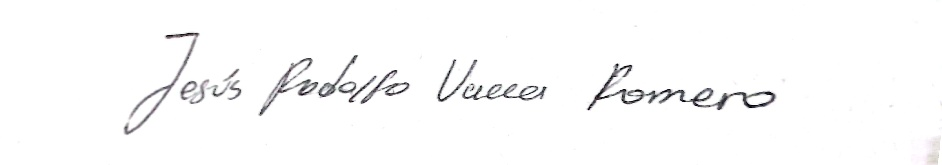 Jesús Rodolfo Vacca Romero